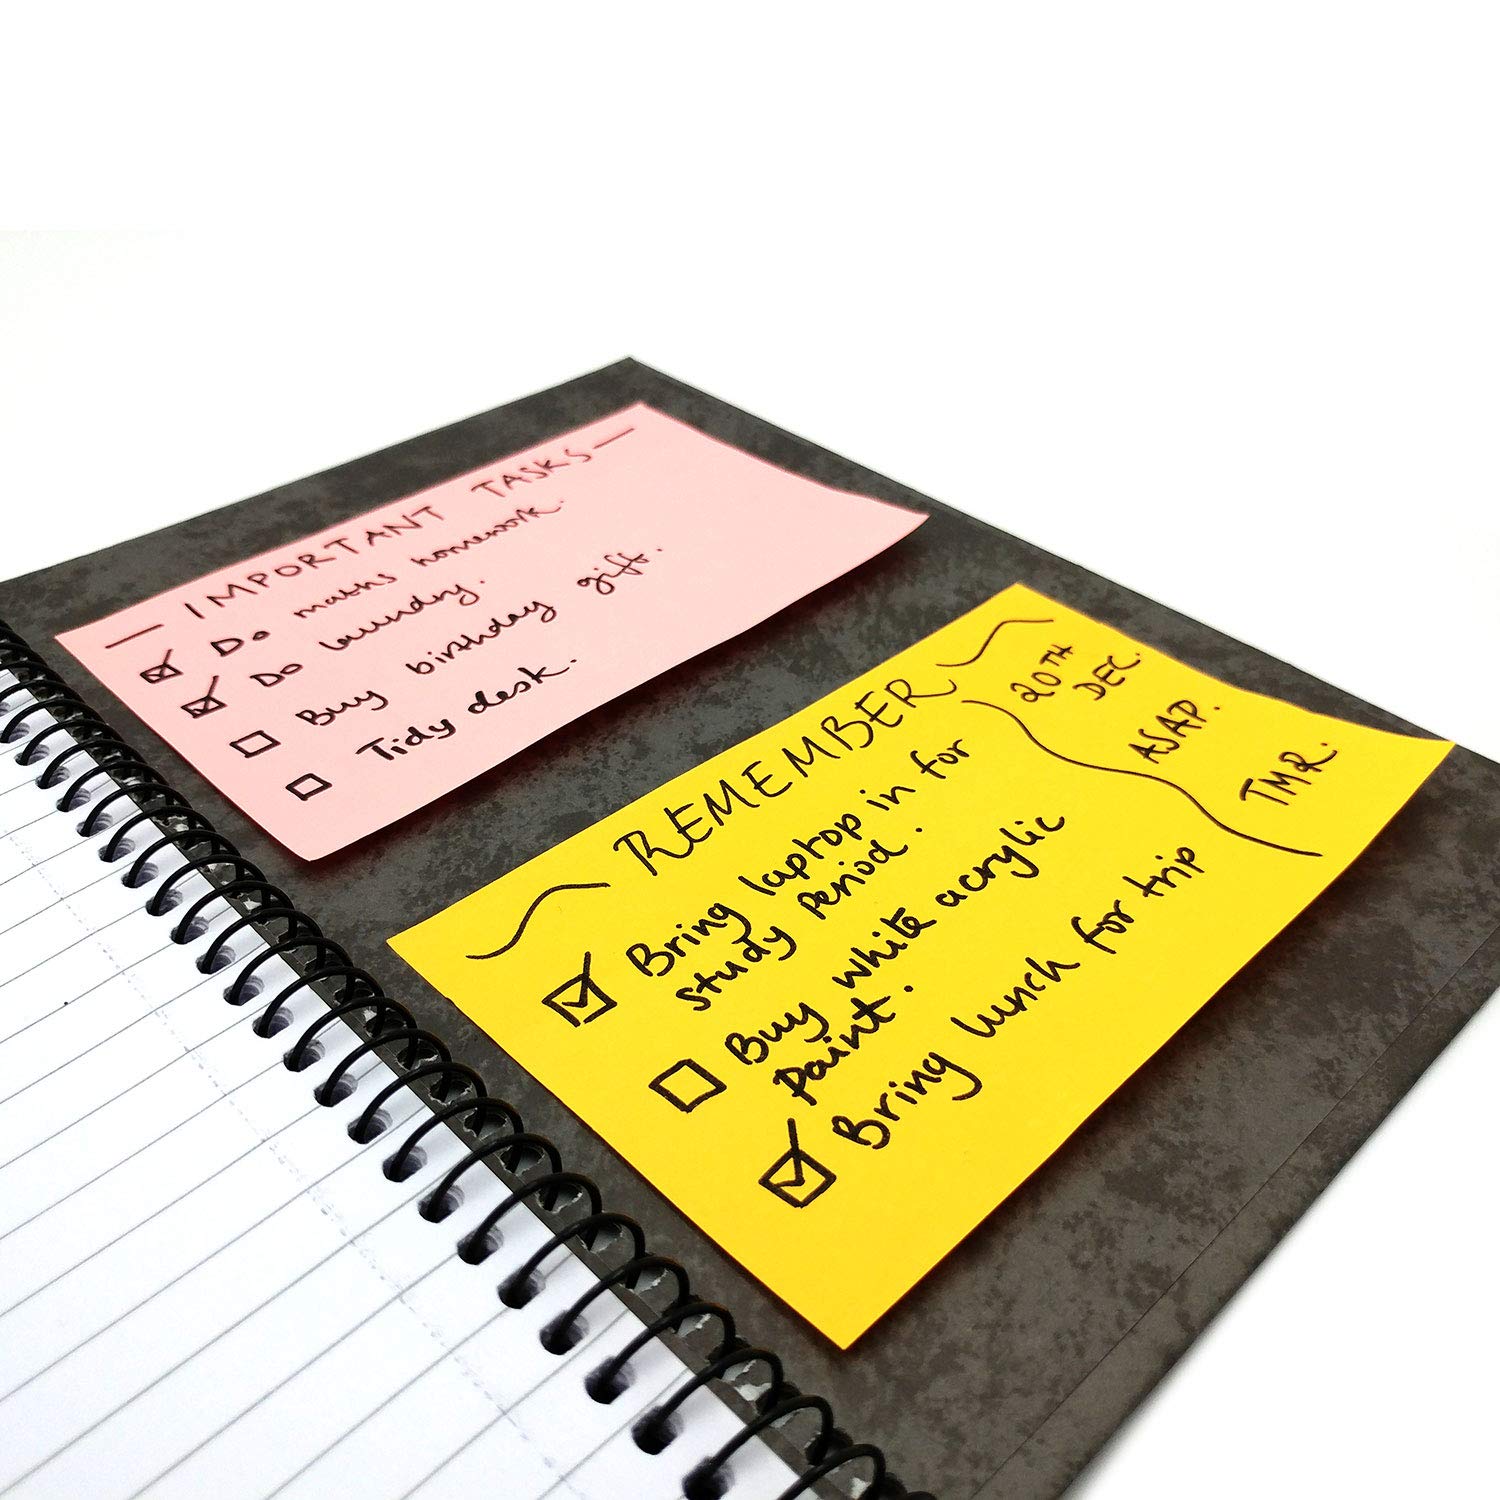 IMPORTANT TASKS
Do maths homework.
Do laundry.
Buy birthday gift.
Tidy desk.
REMEMBER
Bring laptop in for
study period.
Buy white acrylic
paint.
Bring lunch for trip
20TH
DEC.
ASAP.
TMR.